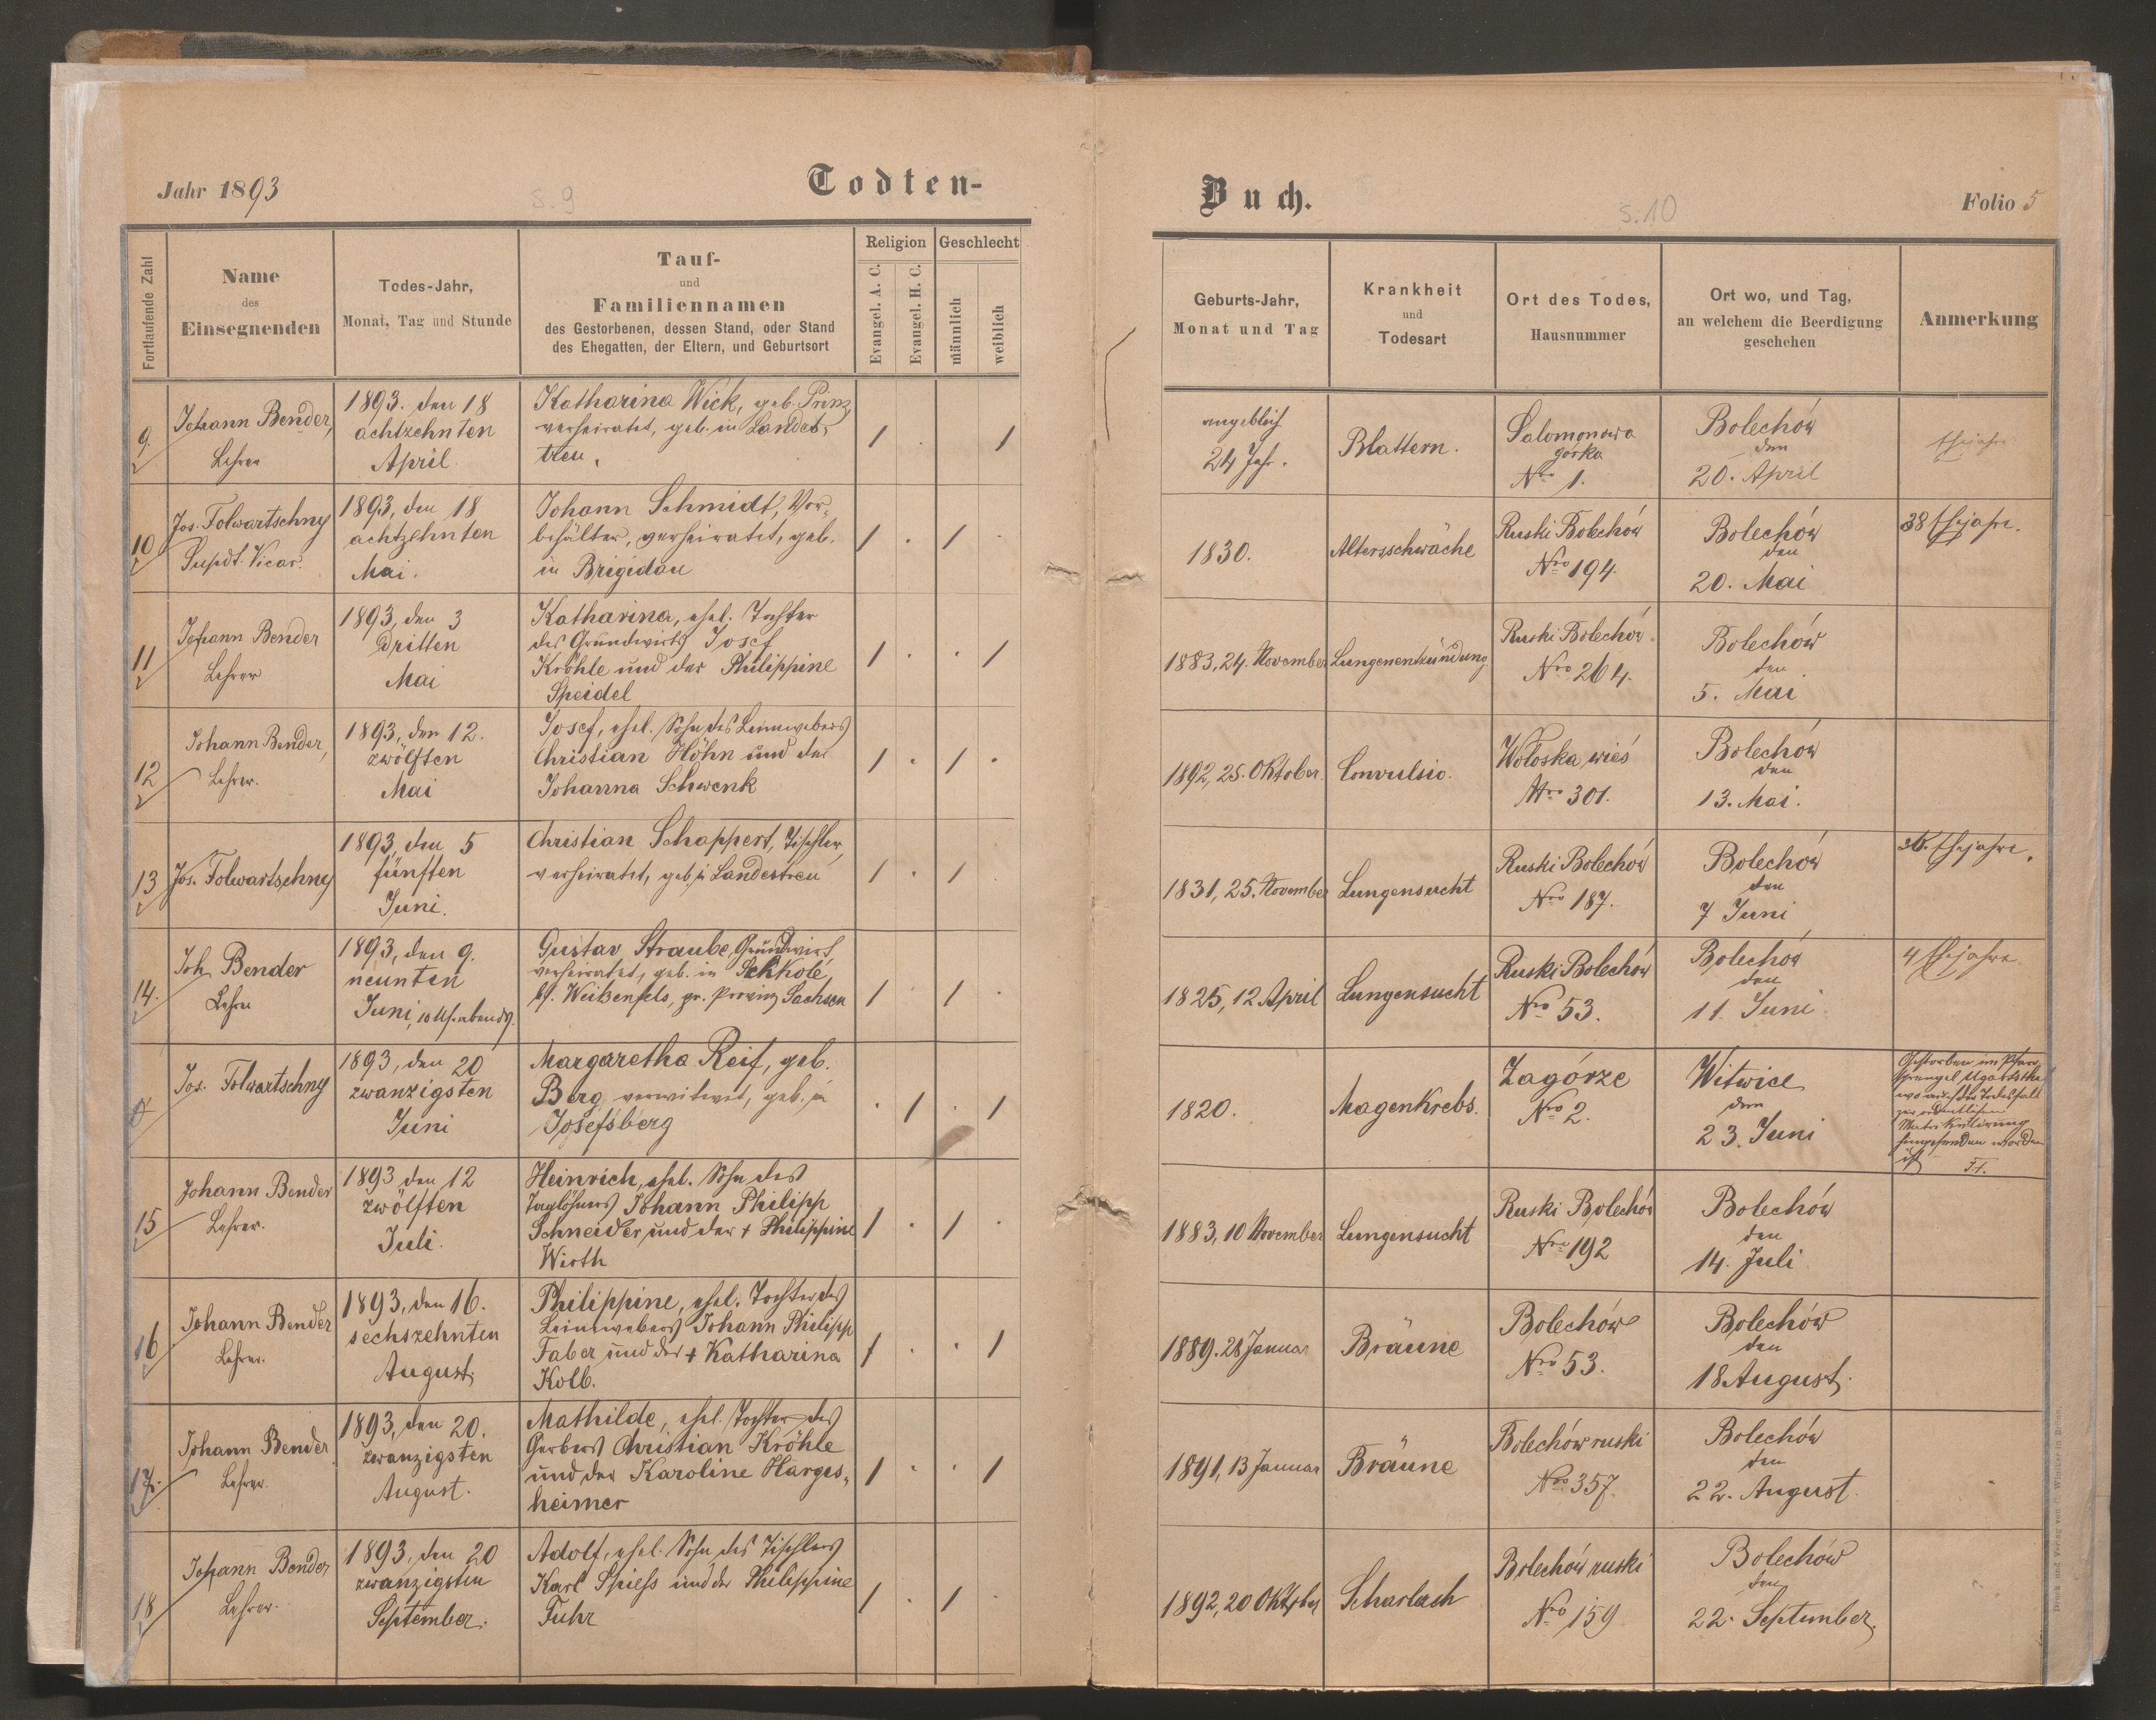 Jahr 1893
s. 9
Todten-
Fortlaufende Zahl
Name
des
Einsegnenden
Todes-Jahr,
Monat, Tag und Stunde
Tauf-
und
Familiennamen
des Gestorbenen, dessen Stand, oder Stand
des Ehegatten, der Eltern, und Geburtsort
Religion
Evangel. A. C.
Evangel. H. C.
Geschlecht
männlich
weiblich
9
Johann Bender,
Lehrer
1893. den 18
achtzehnten
April.
Katharina Wick, geb. Prinz,
verheiratet, geb. in Landes-
treu.
10
Jos. Folwartschny
Supdt. Vicar.
1893, den 18
achtzehnten
Mai.
Johann Schmidt, Vor-
behälter, verheiratet, geb.
in Brigidau
11
Johann Bender
Lehrer
1893, den 3
dritten
Mai
Katharina, ehel. Tochter
des Grundwirts Josef
Kröhle und der Philippine
Speidel
12
Johann Bender,
Lehrer.
1893, den 12.
zwölften
Mai
Josef, ehel. Sohn des Leinwebers
Christian Höhn und der
Johanna Schwenk
13
Jos. Folwartschny
1893, den 5
fünften
Juni.
Christian Schappert, Tischler,
verheiratet, geb. in Landestreu
14.
Joh. Bender
Lehrer
1893, den 9.
neunten
Juni, 10 Uhr abends.
Gustav Straube, Grundwirt,
verheiratet, geb. in
bf. Weißenfels, pr. Provinz Sachsen
Jos. Folwartschny
1893, den 20
zwanzigsten
Juni
Margaretha Reif, geb.
Berg verwitwet, geb. in
Josefsberg
15
Johann Bender
Lehrer.
1893 den 12
zwölften
Juli.
Heinrich, ehel. Sohn des
Taglöhners Johann Philipp
Schneider und der + Philippine
Wirth
16
Johann Bender
Lehrer.
1893, den 16.
sechszehnten
August.
Philippine, ehel. Tochter des
Leinwebers Johann Philipp
Faber und der + Katharina
Kolb.
17.
Johann Bender
Lehrer.
1893, den 20.
zwanzigsten
August.
Mathilde, ehel. Tochter des
Gerbers Christian Kröhle
und der Karoline Harges-
heimer
18
Johann Bender
Lehrer.
1893, den 20
zwanzigsten
September.
Adolf, ehel. Sohn des Tischlers
Karl Spieß und der Philippine
Fuhr
Buch.
s. 10
Folio 5
Geburts-Jahr,
Monat und Tag
Krankheit
und
Todesart
Ort des Todes,
Hausnummer
Ort wo, und Tag,
an welchem die Beerdigung
geschehen
Anmerkung
angeblich
24 Jahr.
Blattern.
Salomonowa
gorka
Nro 1.
Bolechów
den
20. April
Ehejahre
1830.
Altersschwäche
Ruski Bolechów
Nro 194.
Bolechów
den
20. Mai
38 Ehejahre.
1883, 24. November
Lungenentzündung
Ruski Bolechów.
Nro 264.
Bolechów
den
5. Mai
1892, 25. Oktober.
Convulsio.
Wołoska wieś
Nro 301.
Bolechów
den
13. Mai.
1831, 25. November
Lungensucht
Ruski Bolechów
Nro 187.
Bolechów
den
7 Juni
36. Ehejahre.
1825, 12 April
Lungensucht
Ruski Bolechów
Nro 53.
Bolechów
den
11. Juni
4 Ehejahre.
1820.
Magenkrebs.
Zagórze
Nro 2.
Witwice
den
23. Juni
Gestorben im Pfarr-
sprengel Ugartsthal
wo auch der Todesfall
zur ordentlichen
Matrikulirung
ist F.J.
1883, 10 November
Lungensucht
Ruski Bolechów
Nro 192
Bolechów
den
14. Juli
1889. 28 Januar
Bräune
Bolechów
Nro 53.
Bolechów
den
18 August.
1891, 13 Januar
Bräune
Bolechów ruski
Nro 357.
Bolechów
den
22. August.
1892, 20 Oktober
Scharlach
Bolechów ruski
Nro 159
Bolechów
den
22. September.